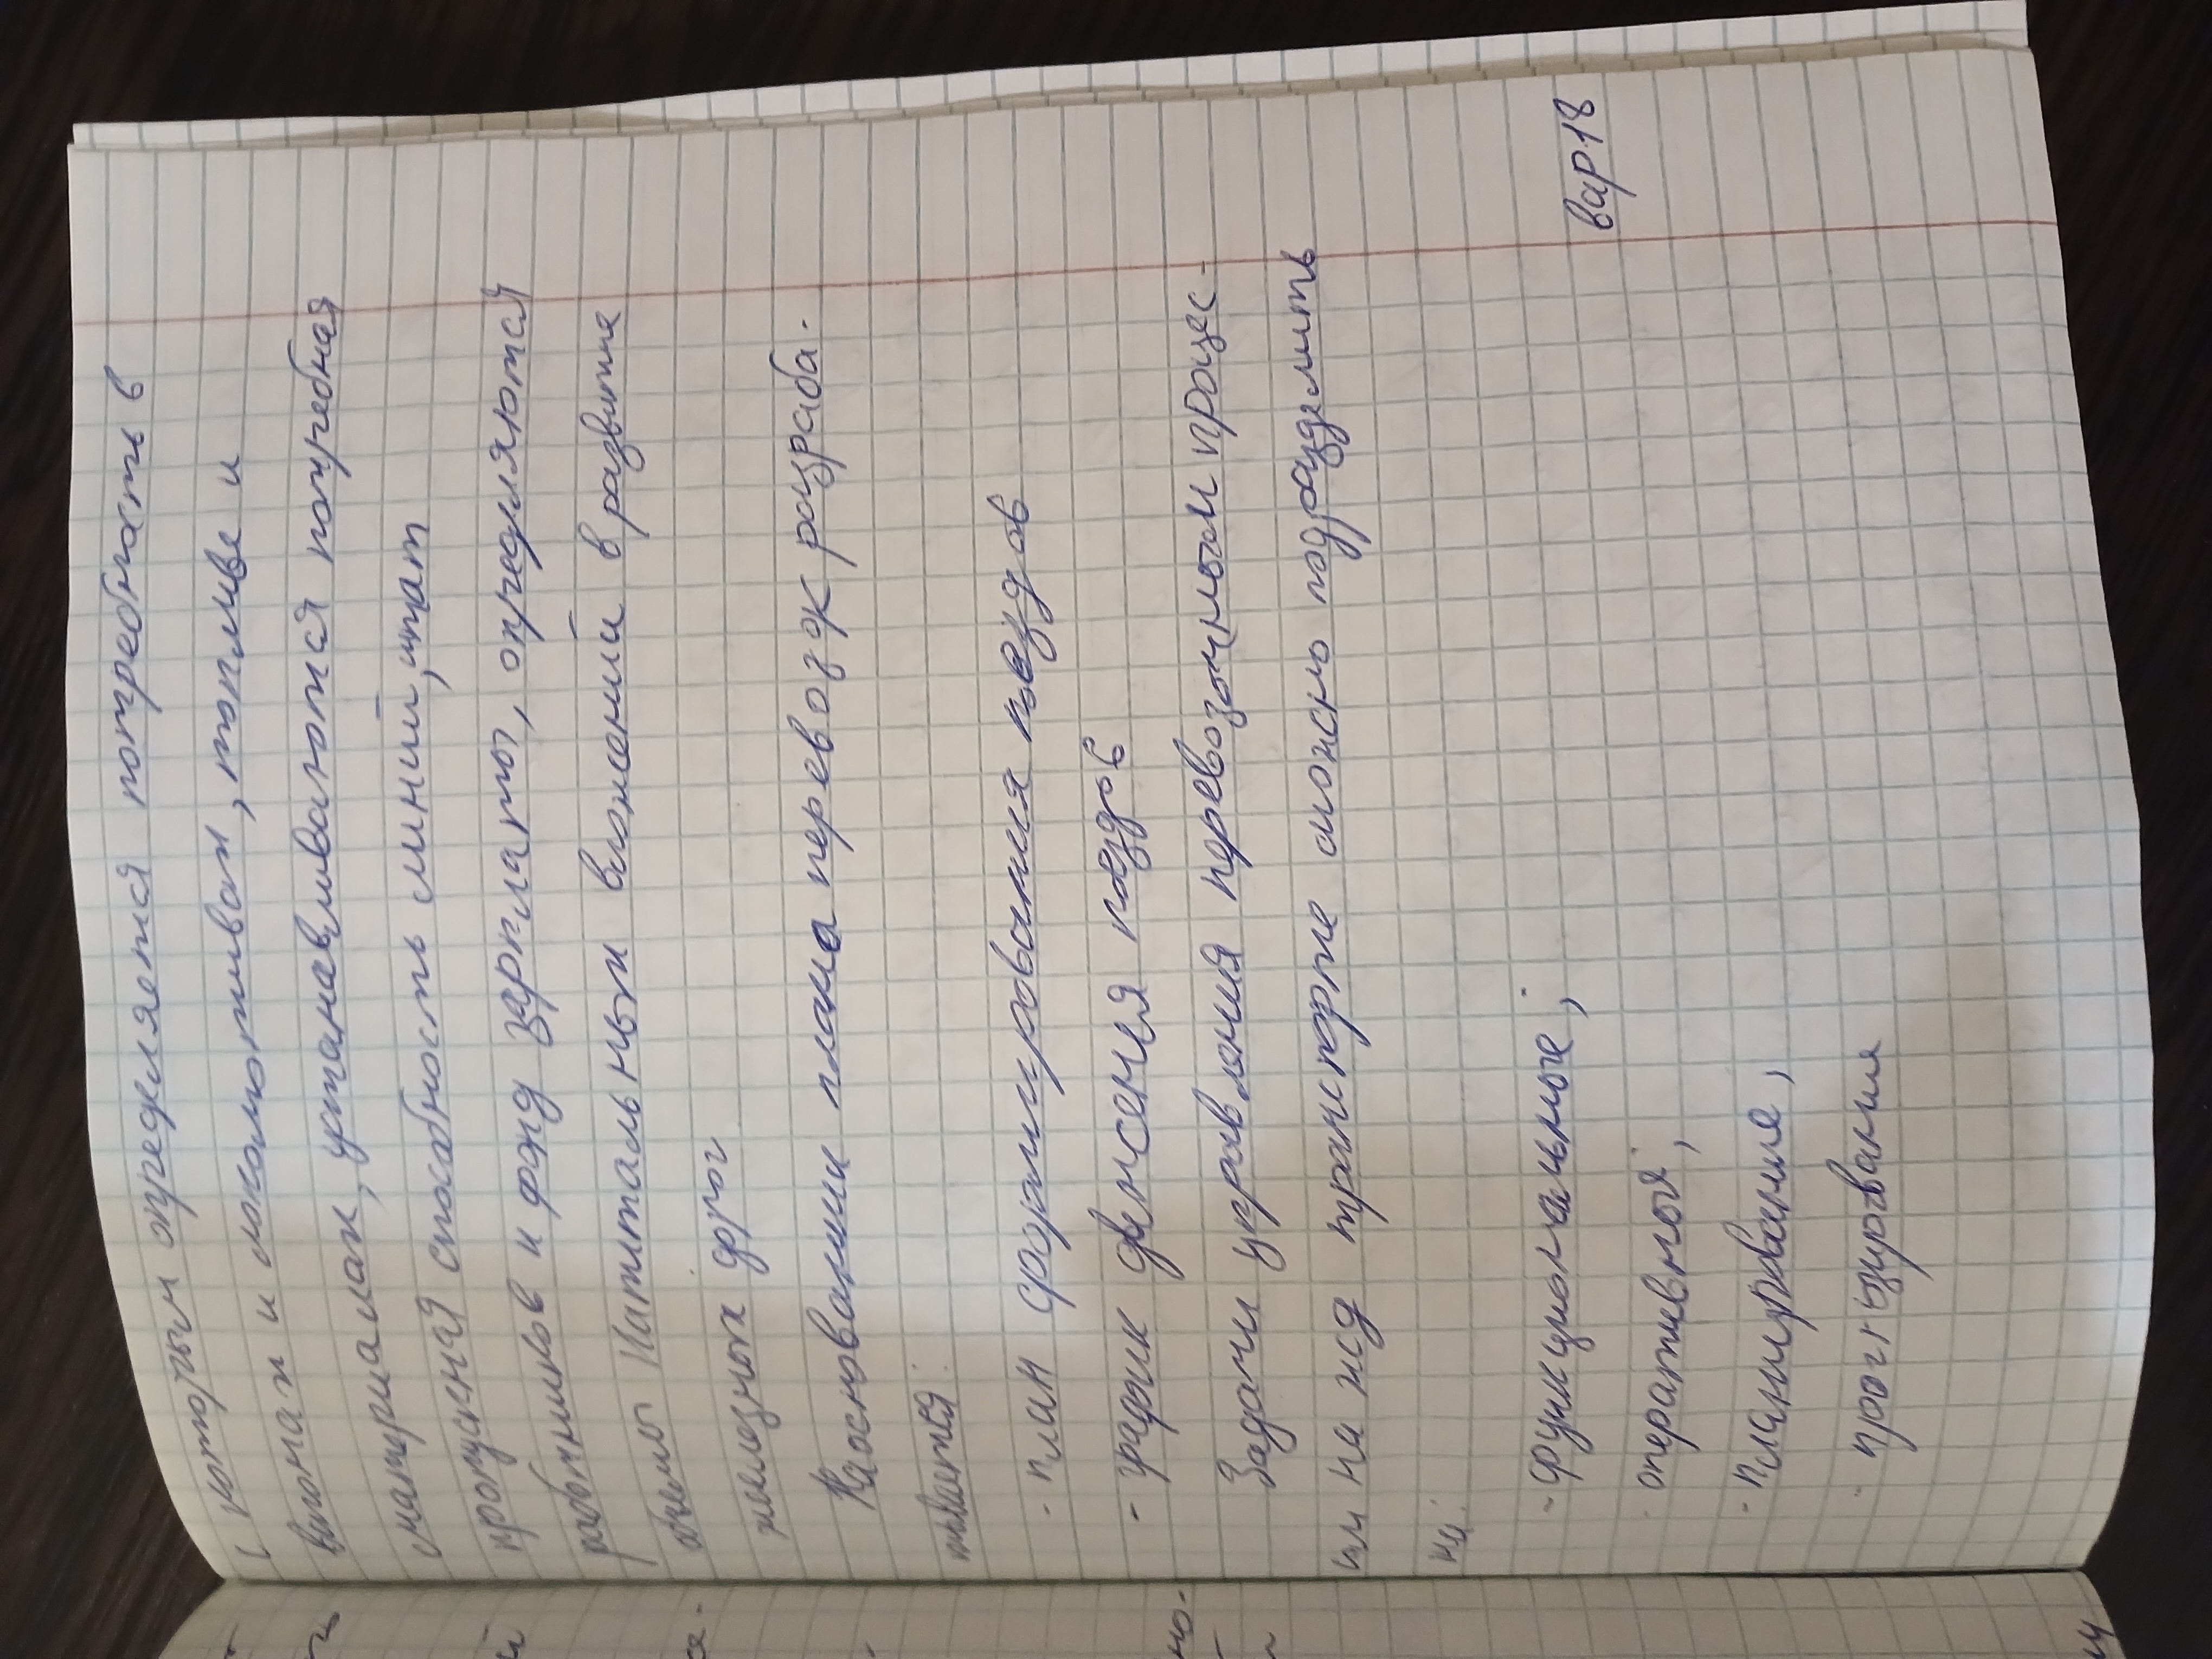 с которым определяется потребность в
вагонах и локомотивах, топливе и
материалах, устанавливаются потребная
пропускная способность линий, штат
работников и фонд зарплаты, определяются
объемы капитальных вложений в развитие
железных дрог
На основании плана перевозок разраба-
тывается:
- план формирования поездов
- график движения поездов
Задачи управления перевозочным процес-
сом на жд транспорте можно подразделить
на:
вар18
- функциональные;
- оперативные,
- планирования,
- прогнозирования